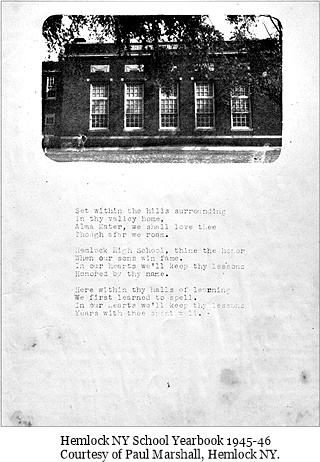 Set within the hills surrounding
In thy valley home,
Alma Mater, we shall love thee
Though afar we roam.
Hemlock High School, thine the honor
When our sons win fame.
In our hearts we'll keep thy lessons
Honored by thy name.
Here within thy halls of learning
We first learned to spell.
In our hearts we'll keep thy lessons
Years with thee spent well.
Hemlock NY School Yearbook 1945-46
Courtesy of Paul Marshall, Hemlock NY.